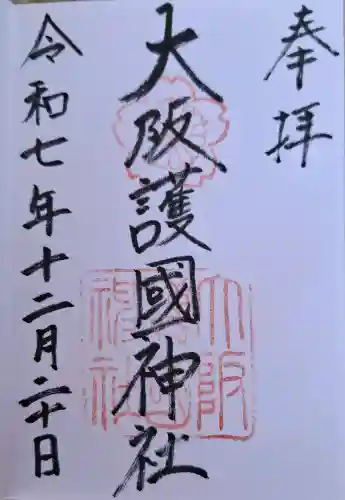 奉拝
大阪護國神社
令和七年十二月二十日